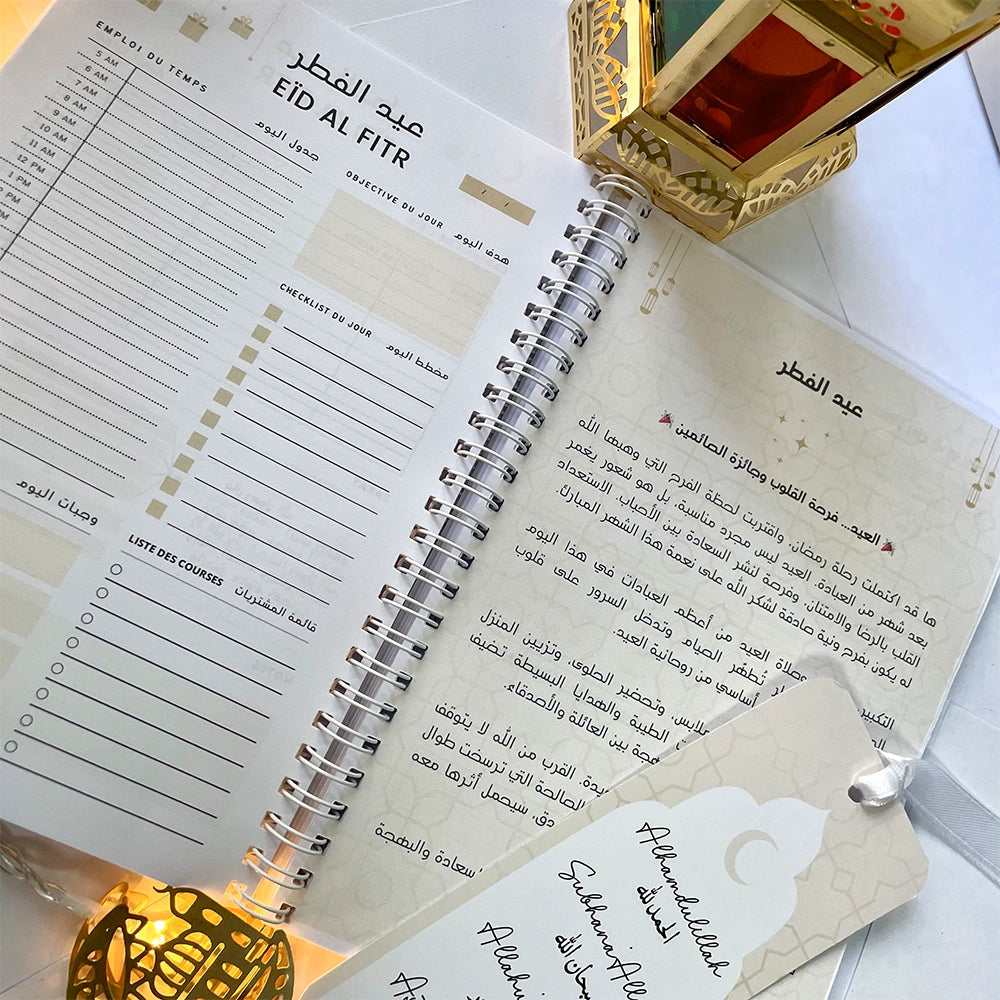 EMPLOI DU TEMPS
5 AM
6 AM
7 AM
8 AM
9 AM
10 AM
11 AM
12 PM
1 PM
PM
PM
عيد الفطر
EÏD AL FITR
جدول اليوم
/ /
OBJECTIVE DU JOUR هدف اليوم
CHECKLIST DU JOUR مخطط اليوم
وجبات اليوم
LISTE DES COURSES قائمة المشتريات
عيد الفطر
🎉 العيد... فرحة القلوب وجائزة الصائمين 🎉
ها قد اكتملت رحلة رمضان، واقتربت لحظة الفرح التي وهبها الله
بعد شهر من العبادة. العيد ليس مجرد مناسبة، بل هو شعور يغمر
القلب بالرضا والامتنان، وفرصة لنشر السعادة بين الأحباب. الاستعداد
له يكون بفرح ونية صادقة لشكر الله على نعمة هذا الشهر المبارك.
التكبير وصلاة العيد من أعظم العبادات في هذا اليوم
تُطهّر الصيام وتدخل السرور على قلوب
أساسي من روحانية العيد.
وتحضير الحلوى، وتزيين المنزل
الطيبة والهدايا البسيطة تضيف
بين العائلة والأصدقاء.
القرب من الله لا يتوقف
الصالحة التي ترسخت طوال
سيحمل أثرها معه
سعادة والبهجة
Alhamdulillah
الحمد لله
Subhana All
سبحان الله
Allahu